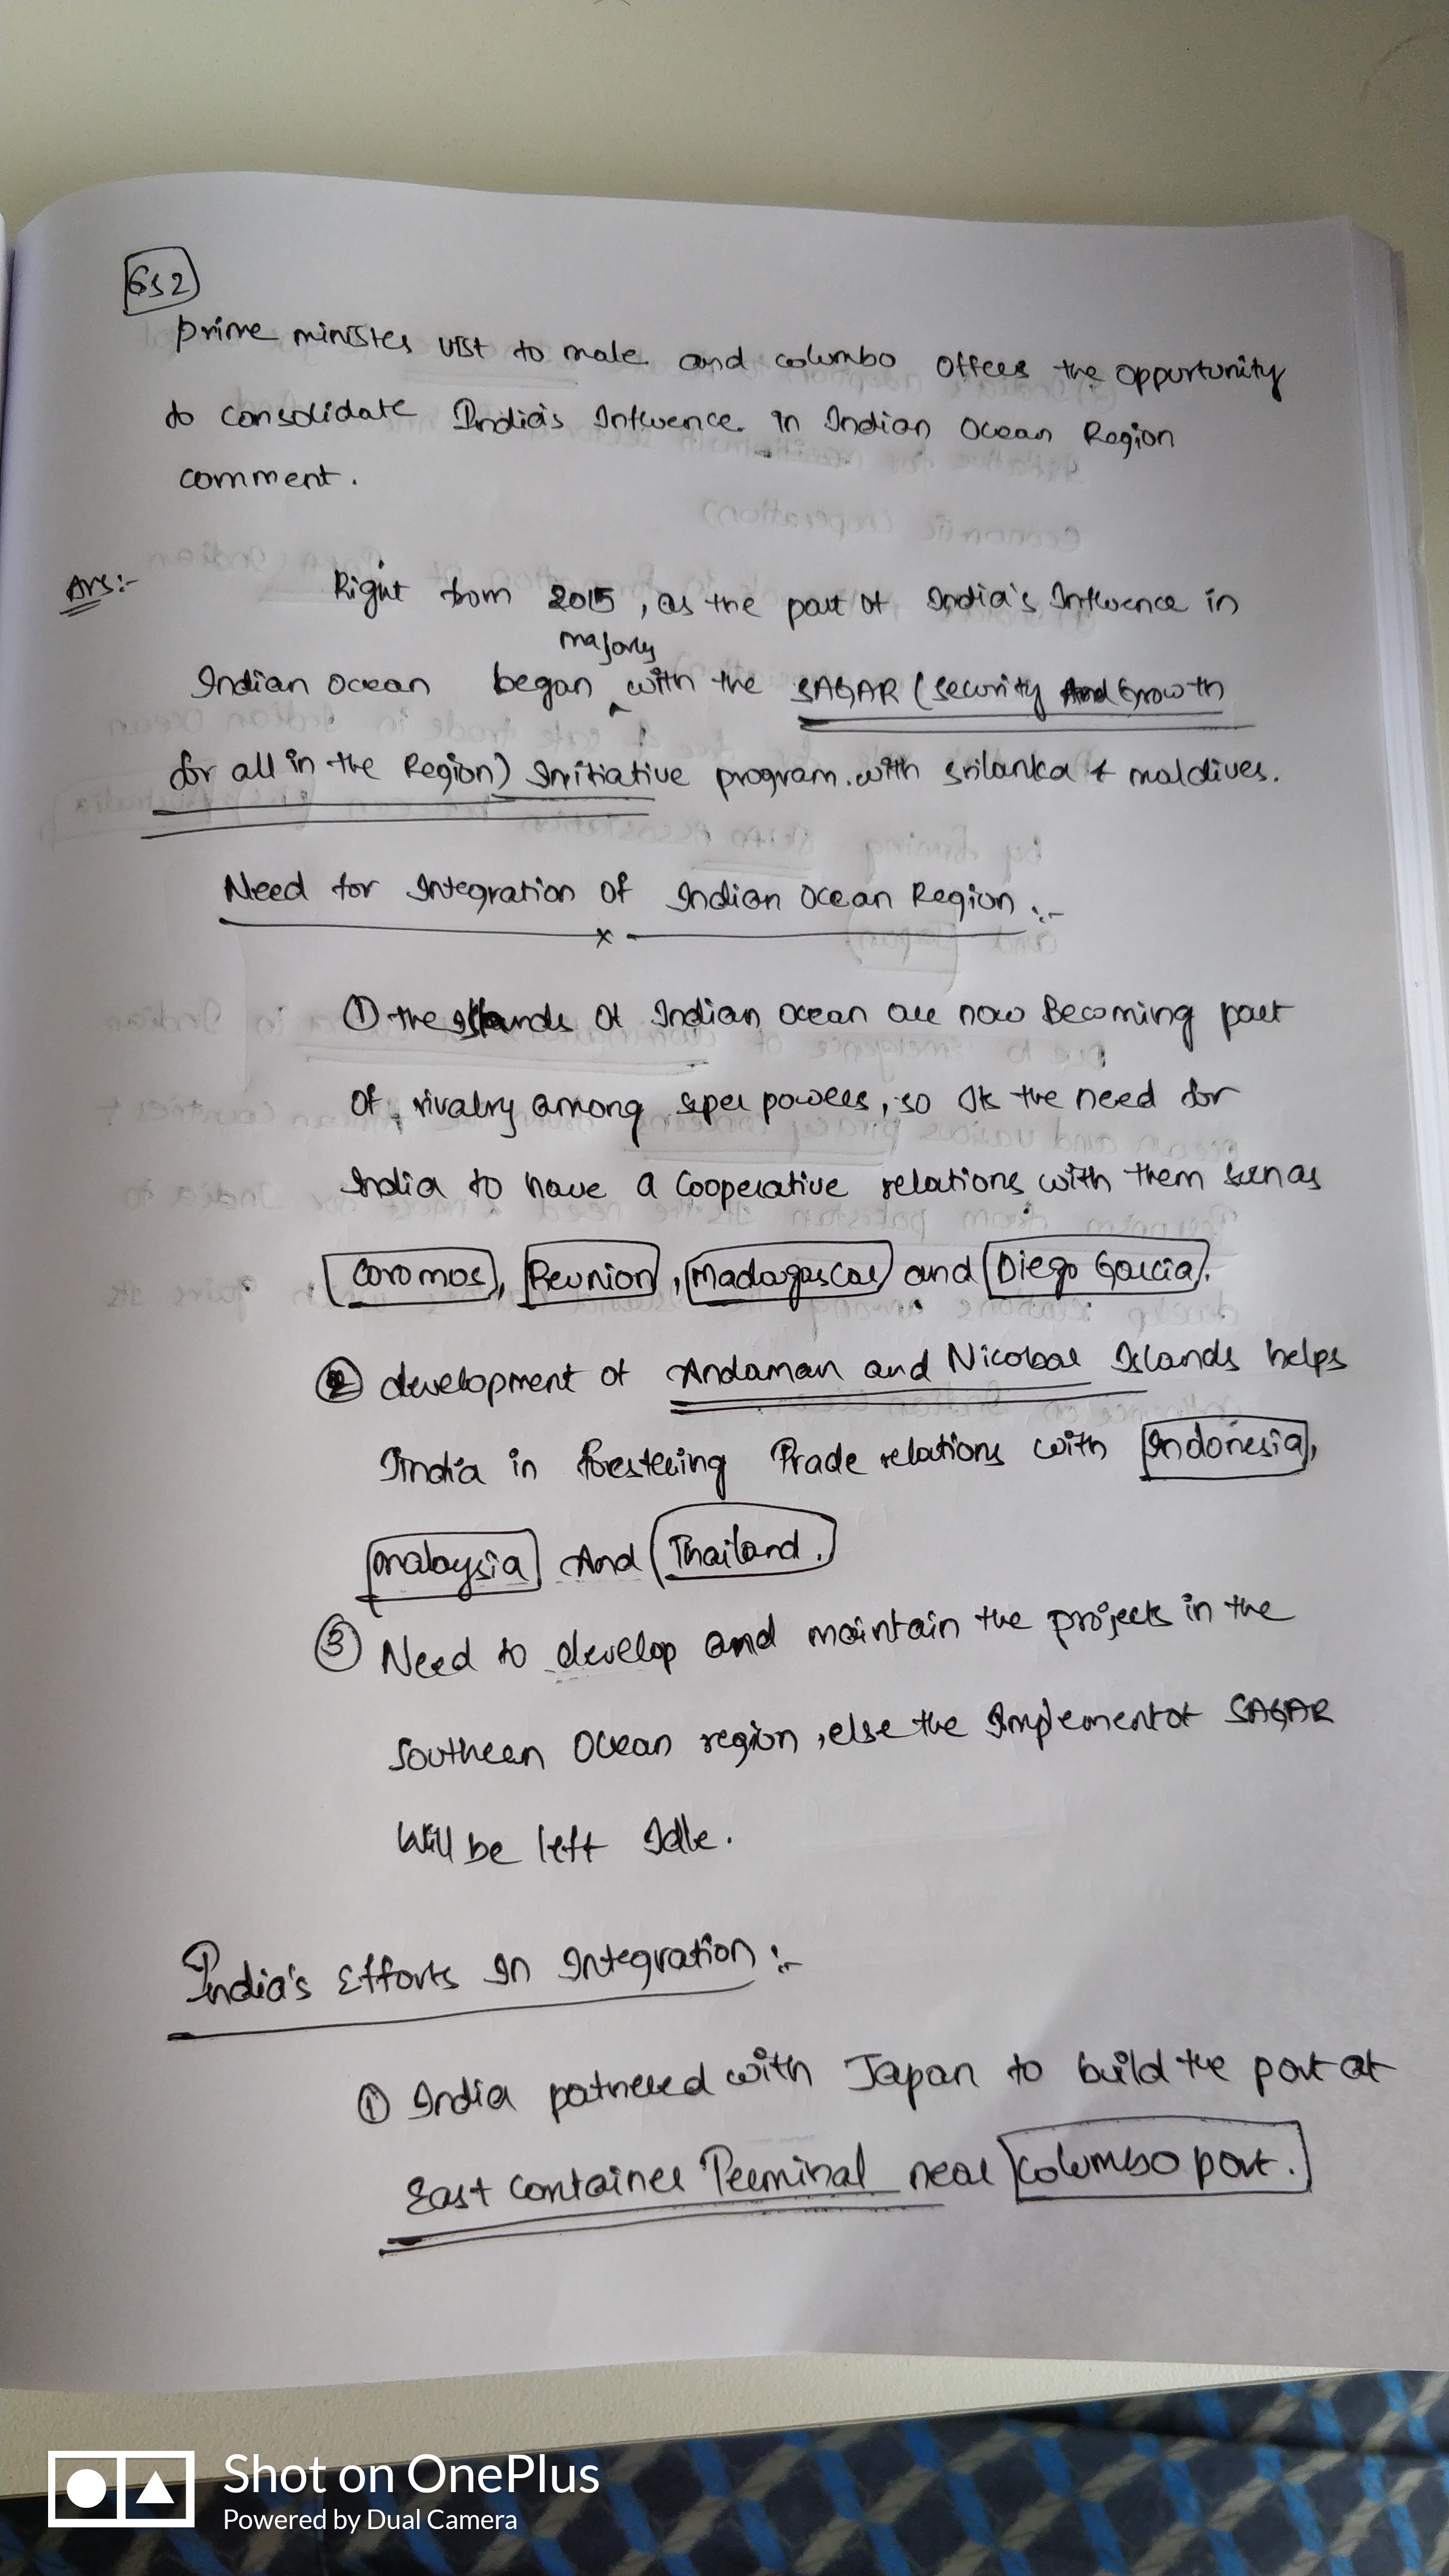 GS2
prime minister visit to male and columbo offers the oppurtunity
to consolidate India's Influence in Indian Ocean Region
comment.
Ans:-
Right from 2015, as the part of India's Influence in
majorly
Indian Ocean began with the SAGAR (security And Growth
for all in the Region) Initiative program. with srilanka & maldives.
Need for Integration of Indian Ocean Region :-
① the Islands of Indian Ocean are now Becoming part
of rivalry among super powers, so Its the need for
India to have a Cooperative relations with them such as
Coromos, Reunion, Madagascar and Diego Garcia.
② development of Andaman and Nicobar Islands helps
India in forstering Trade relations with Indonesia,
malaysia And Thailand.
③ Need to develop and maintain the projects in the
Southern Ocean region, else the Implement of SAGAR
will be left Idle.
India's Efforts In Integration :-
① India patnered with Japan to build the port at
East Container Terminal near Columbo port.
Shot on OnePlus
Powered by Dual Camera